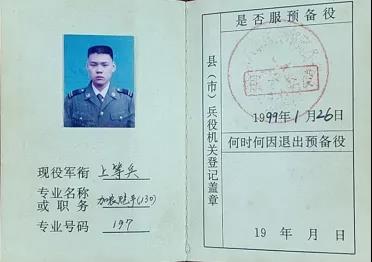 现役军衔 上等兵
专业名称
或 职 务
专业号码 197
县（市）兵役机关登记盖章
是否服预备役
1999年1月26日
何时何因退出预备役
19 年 月 日